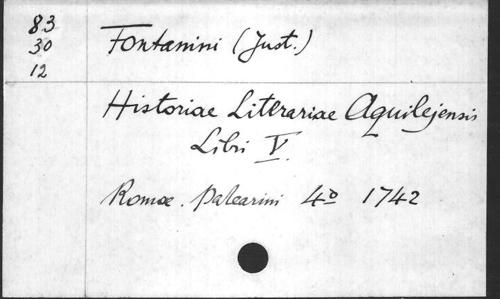 83
30
12
Fontanini (Just.)
Historiae Literariae Aquilejensis
Libri V.
Romæ. Palearini 4º 1742